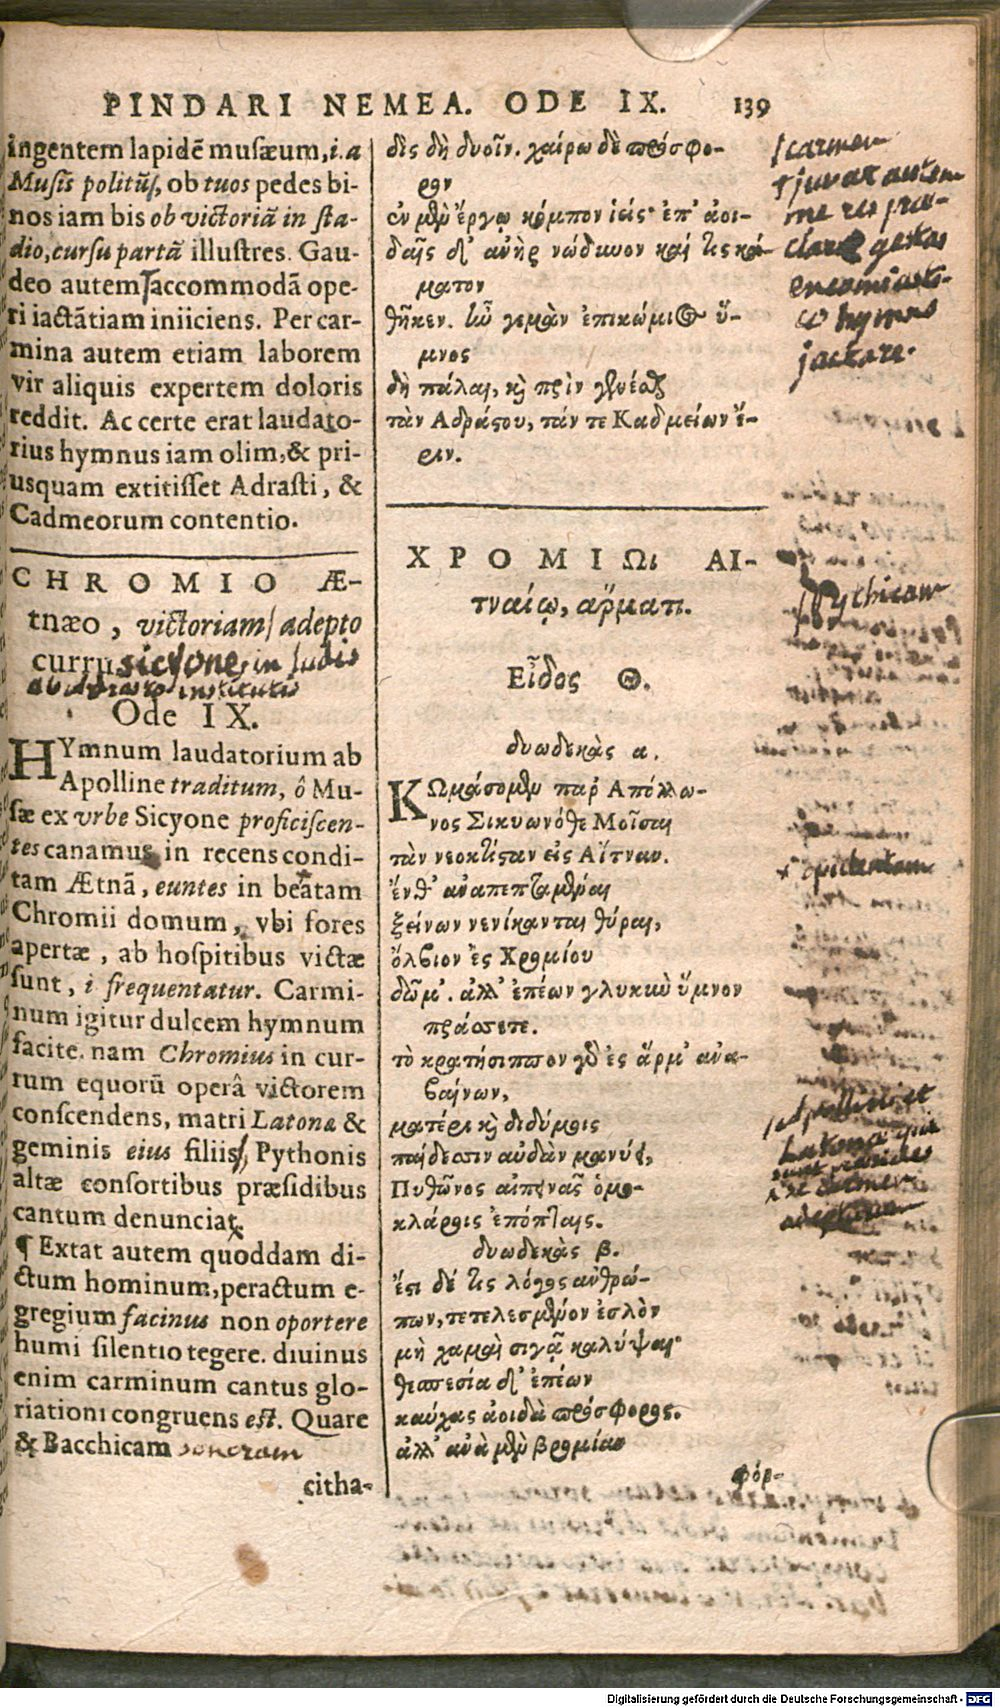 PINDARI NEMEA. ODE IX. 139
ingentem lapidẽ musæum, i. a
Musis politũs, ob tuos pedes bi-
nos iam bis ob victoriã in sta-
dio, cursu partã illustres. Gau-
deo autem accommodã ope-
ri iactãtiam iniiciens. Per car-
mina autem etiam laborem
vir aliquis expertem doloris
reddit. Ac certe erat laudato-
rius hymnus iam olim, & pri-
usquam extitisset Adrasti, &
Cadmeorum contentio.
CHROMIO Æ-
tnæo, victoriam adepto
curru sicyone, in ludis
ab adrasto institutis
Ode IX.
HYmnum laudatorium ab
Apolline traditum, ô Mu-
sæ ex vrbe Sicyone proficiscen-
tes canamus in recens condi-
tam Ætnã, euntes in beatam
Chromii domum, vbi fores
apertæ, ab hospitibus victæ
sunt, i frequentatur. Carmi-
num igitur dulcem hymnum
facite. nam Chromius in cur-
rum equorũ operâ victorem
conscendens, matri Latonæ &
geminis eius filiis, Pythonis
altæ consortibus præsidibus
cantum denunciat.
¶ Extat autem quoddam di-
ctum hominum, peractum e-
gregium facinus non oportere
humi silentio tegere. diuinus
enim carminum cantus glo-
riationi congruens est. Quare
& Bacchicam sonoram
citha-
δὶς δὴ δυοῖν. χαίρω δὲ πρόσφο-
ρον
ἐν μὲν ἔργῳ κόμπον ἱείς· ἐπ' ἀοι-
δαῖς δ' ἀνὴρ νώδυνον καί τις κά-
ματον
θῆκεν. ἦν γεμὰν ἐπικώμιος ὕ-
μνος
δὴ πάλαι, καὶ πρὶν γενέσθαι
τὰν Ἀδράστου, τάν τε Καδμείων ἔ-
ριν.
ΧΡΟΜΙΩι ΑΙ-
τναίῳ, ἅρματι.
Εἶδος Θ.
δυωδεκὰς α.
ΚΩμάσομεν παρ' Ἀπόλλω-
νος Σικυωνόθε Μοῖσαι
τὰν νεοκτίσταν εἰς Αἴτναν.
ἔνθ' ἀναπεπταμέναι
ξείνων νενίκανται θύραι,
ὄλβιον ἐς Χρομίου
δῶμ'. ἀλλ' ἐπέων γλυκὺν ὕμνον
πράσσετε.
τὸ κρατήσιππον γὰρ ἐς ἅρμ' ἀνα-
βαίνων,
ματέρι καὶ διδύμοις
παίδεσσιν αὐδὰν μανύει,
Πυθῶνος αἰπεινᾶς ὁμο-
κλάροις ἐπόπταις.
δυωδεκὰς β.
ἔστι δέ τις λόγος ἀνθρώ-
πων, τετελεσμένον ἐσλὸν
μὴ χαμαὶ σιγᾷ καλύψαι·
θεσπεσία δ' ἐπέων
καύχας ἀοιδὰ πρόσφορος.
ἀλλ' ἀνὰ μὲν βρομίαν
φόρ-
carmen
juvat autem
me res prae-
clare gestas
encomiasti-
co hymno
jactare.
Pythicam
Apollini et
Latonae qui
Digitalisierung gefördert durch die Deutsche Forschungsgemeinschaft - DFG